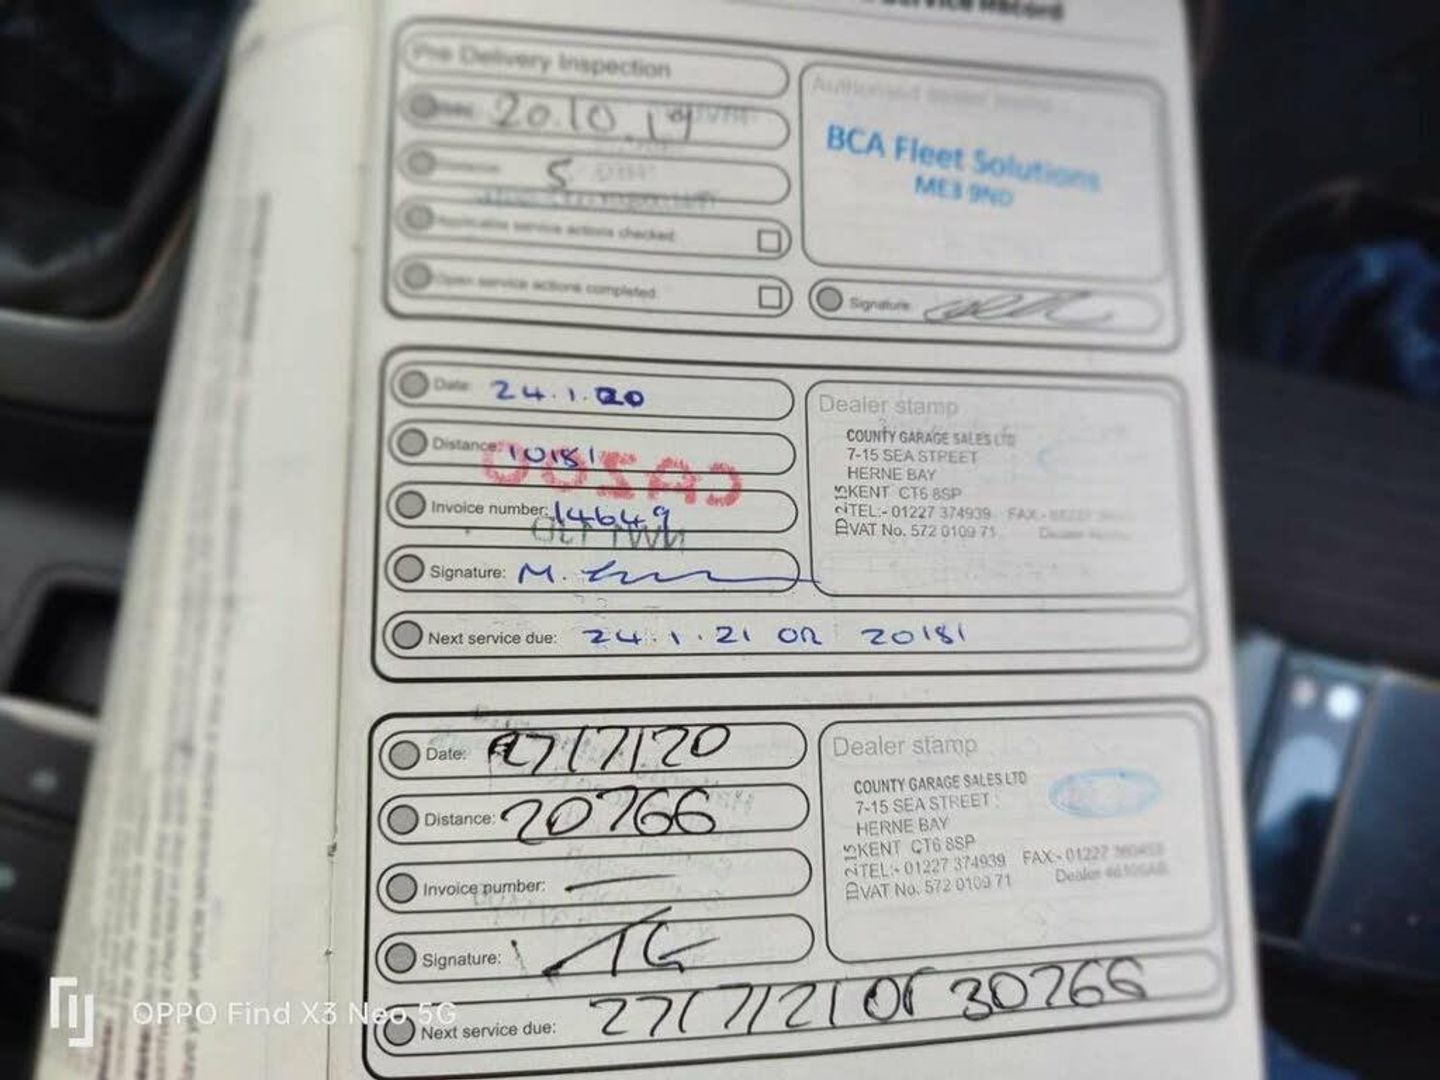 Service Record
Pre Delivery Inspection
20.10.19
5
Applicable service actions checked:
Open service actions completed:
Authorised dealer stamp
BCA Fleet Solutions
ME3 9ND
Signature:
Date: 24.1.20
Distance: 10181
Invoice number: 14649
Signature: M.
Next service due: 24.1.21 OR 20181
Dealer stamp
COUNTY GARAGE SALES LTD
7-15 SEA STREET
HERNE BAY
KENT CT6 8SP
TEL:- 01227 374939 FAX:-
VAT No. 572 0109 71
Date: 27/7/20
Distance: 20766
Invoice number: —
Signature:
Next service due: 27/7/21 or 30766
Dealer stamp
COUNTY GARAGE SALES LTD
7-15 SEA STREET
HERNE BAY
KENT CT6 8SP
TEL:- 01227 374939 FAX:- 01227
VAT No. 572 0109 71 Dealer
OPPO Find X3 Neo 5G